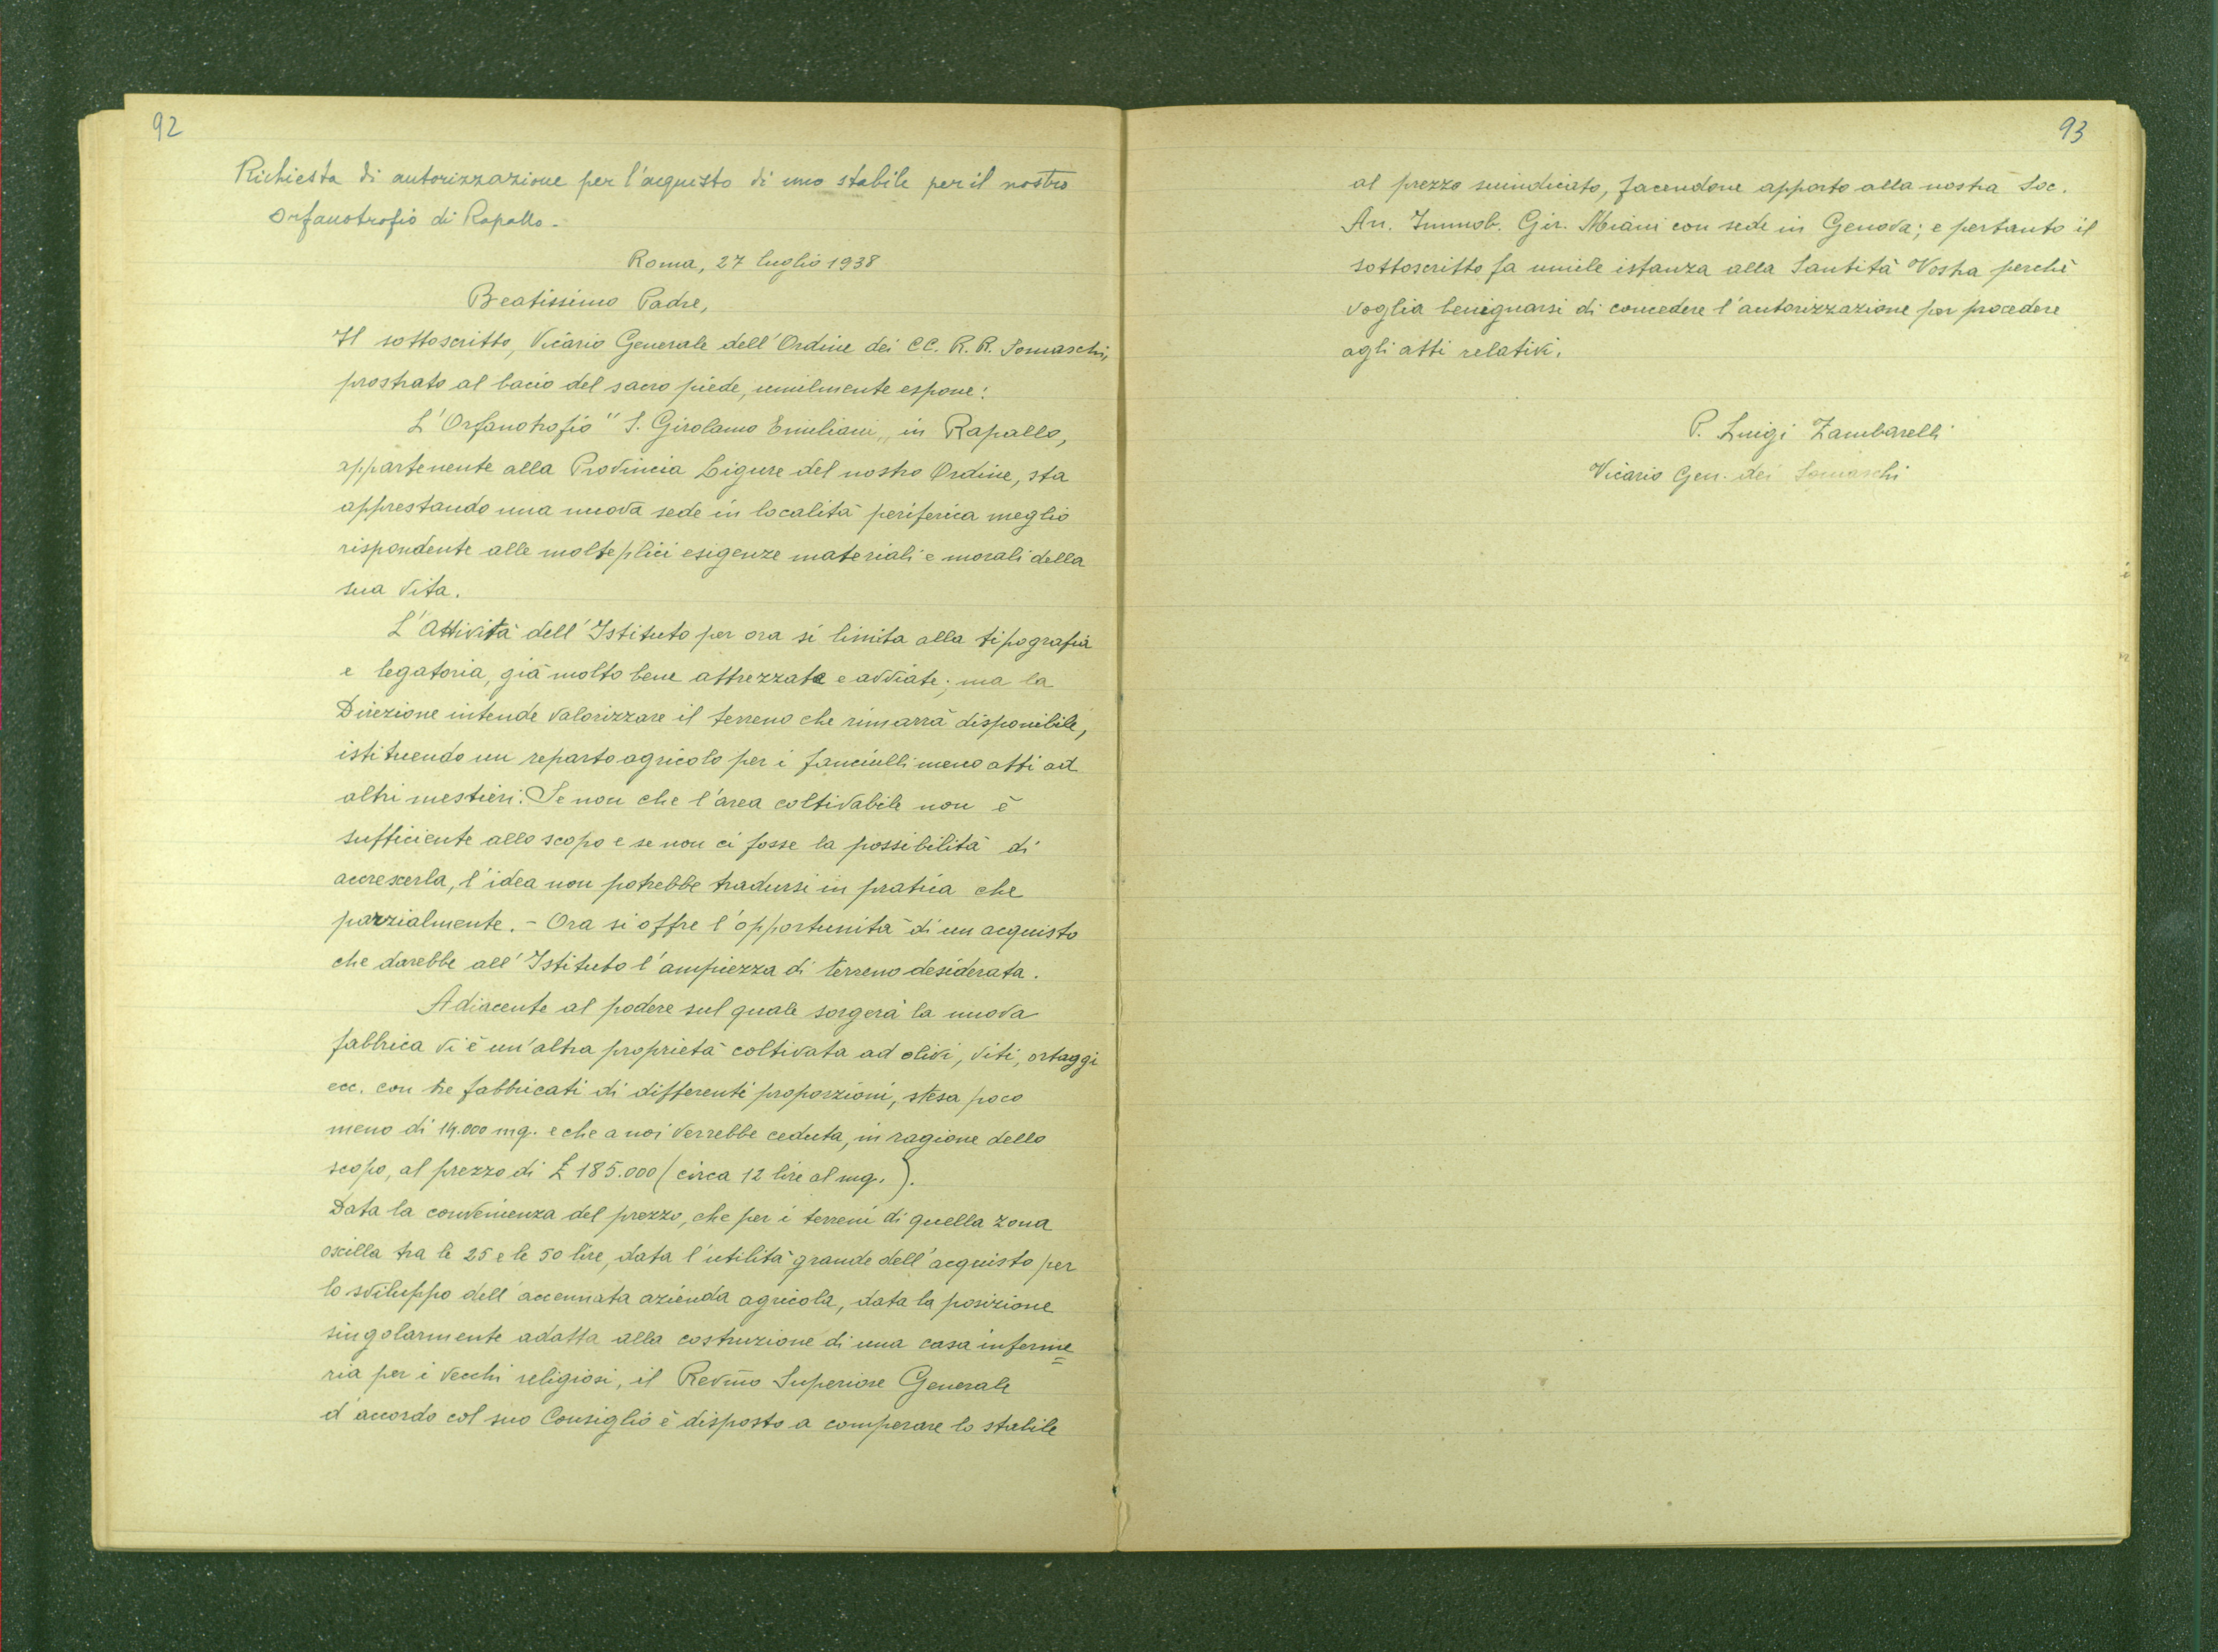 92
Richiesta di autorizzazione per l'acquisto di uno stabile per il nostro
orfanotrofio di Rapallo.
Roma, 27 luglio 1938
Beatissimo Padre,
Il sottoscritto, Vicario Generale dell'Ordine dei CC. R. R. Somaschi,
prostrato al bacio del sacro piede, umilmente espone:
L'Orfanotrofio "S. Girolamo Emiliani" in Rapallo,
appartenente alla Provincia Ligure del nostro Ordine, sta
apprestando una nuova sede in località periferica meglio
rispondente alle molteplici esigenze materiali e morali della
sua vita.
L'Attività dell'Istituto per ora si limita alla tipografia
e legatoria, già molto bene attrezzate e avviate; ma la
Direzione intende valorizzare il terreno che rimarrà disponibile,
istituendo un reparto agricolo per i fanciulli meno atti ad
altri mestieri. Se non che l'area coltivabile non è
sufficiente allo scopo e se non ci fosse la possibilità di
accrescerla, l'idea non potrebbe tradursi in pratica che
parzialmente. - Ora si offre l'opportunità di un acquisto
che darebbe all'Istituto l'ampiezza di terreno desiderata.
Adiacente al podere sul quale sorgerà la nuova
fabbrica vi è un'altra proprietà coltivata ad olivi, viti, ortaggi
ecc. con tre fabbricati di differenti proporzioni, stesa poco
meno di 14.000 mq. e che a noi verrebbe ceduta, in ragione dello
scopo, al prezzo di £ 185.000 (circa 12 lire al mq.).
Data la convenienza del prezzo, che per i terreni di quella zona
oscilla tra le 25 e le 50 lire, data l'utilità grande dell'acquisto per
lo sviluppo dell'accennata azienda agricola, data la posizione
singolarmente adatta alla costruzione di una casa inferme=
ria per i vecchi religiosi, il Revm̃o Superiore Generale
d'accordo col suo Consiglio è disposto a comperare lo stabile
93
al prezzo suindicato, facendone apporto alla nostra Soc.
An. Immob. Gir. Miani con sede in Genova; e pertanto il
sottoscritto fa umile istanza alla Santità Vostra perchè
voglia benignarsi di concedere l'autorizzazione per procedere
agli atti relativi.
P. Luigi Zambarelli
Vicario Gen. dei Somaschi